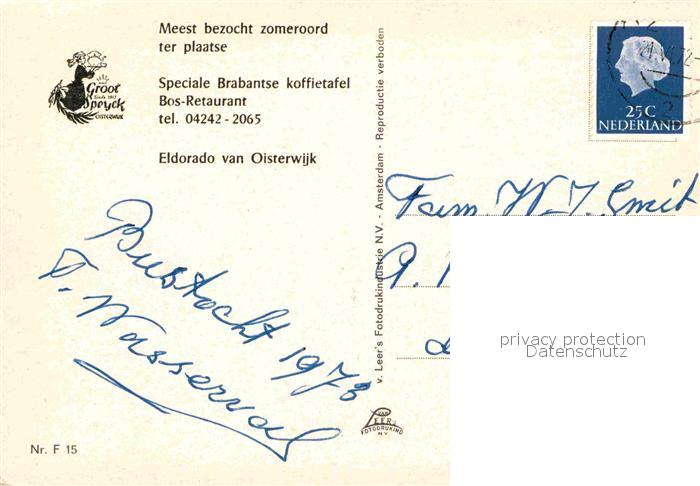 Meest bezocht zomeroord
ter plaatse
Groot
Speyck
Sinds 1913
OISTERWIJK
Speciale Brabantse koffietafel
Bos-Retaurant
tel. 04242-2065
Eldorado van Oisterwijk
v. Leer's Fotodrukindustrie N.V. - Amsterdam - Reproductie verboden
25 C
NEDERLAND
Fam W. J. Smit
A.
privacy protection
Datenschutz
Pustocht 1973
T. Wasserval
VAN
LEER'S
FOTODRUKIND
N.V.
Nr. F 15